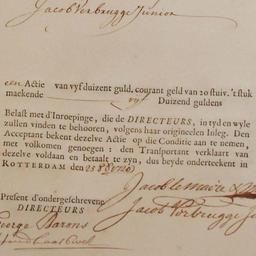 Jacob Verbrugge Junior
een Actie van vyf duizent guld. courant geld van 20 stuiv. 't stuk
makende vyf Duizend guldens
Belast met d'Inroepinge, die de DIRECTEURS, in tyd en wyle
zullen vinden te behooren, volgens haar origineelen Inleg. Den
Acceptant bekent dezelve Actie op die Conditie aan te nemen,
met volkomen genoegen: den Transportant verklaart van
dezelve voldaan en betaalt te zyn, dus beyde onderteekent in
ROTTERDAM den 25
Jacob le Maire
Present d'ondergeschrevene
DIRECTEURS
Jacob Verbrugge J
George Barons